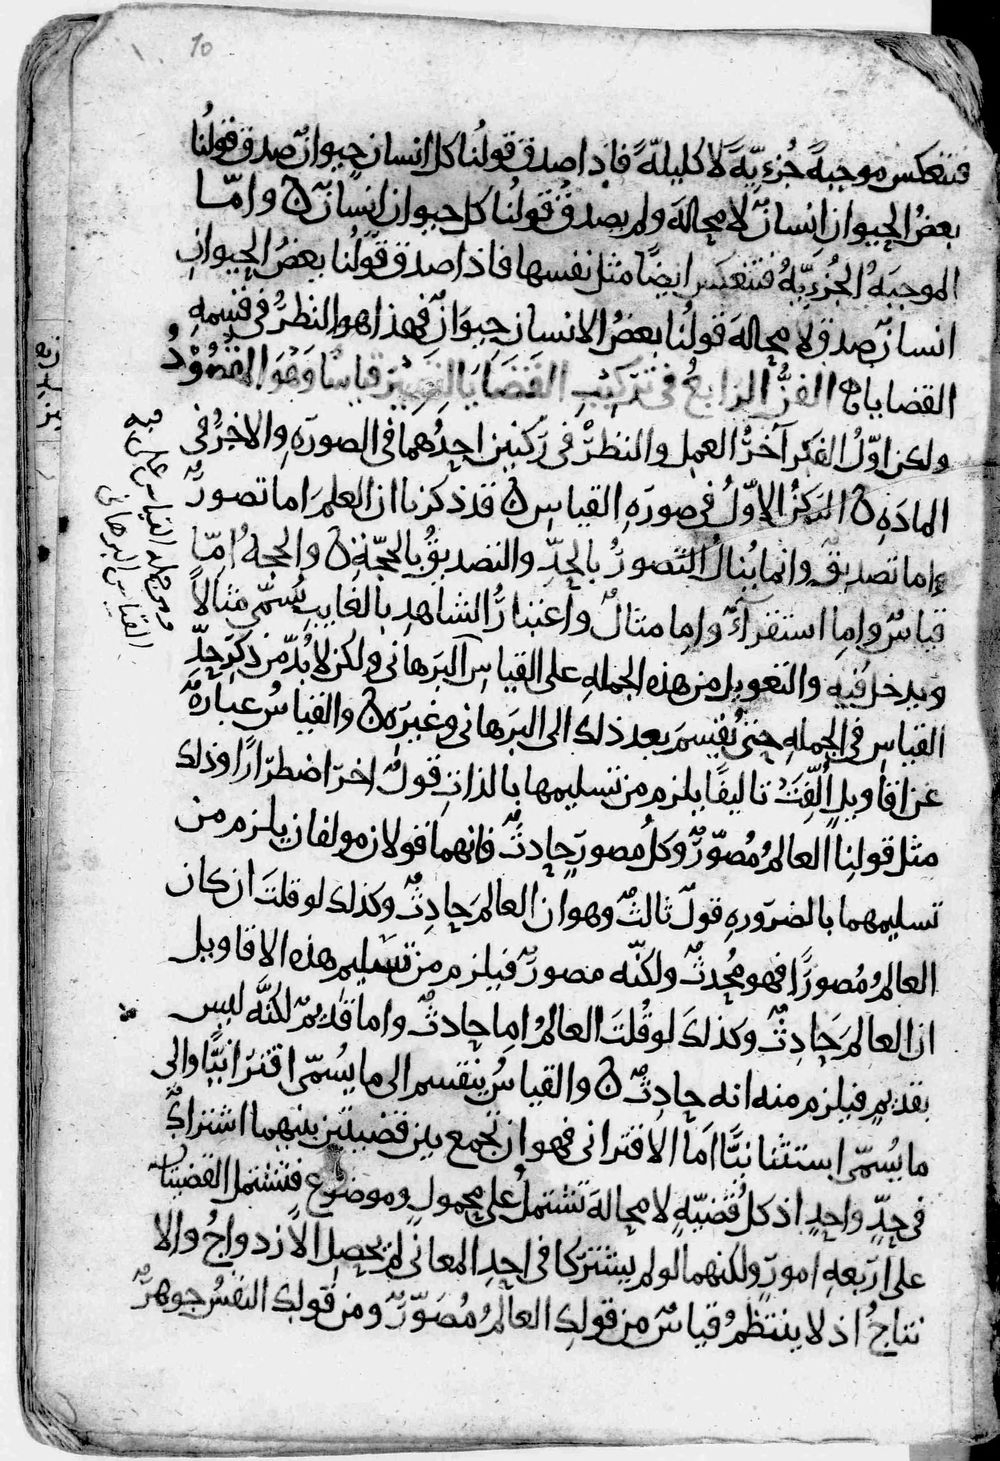 10
فتنعكس موجبةً جُزءيّةً لا كليلةً فاذا صدق قولُنا كل انسان حيوانٌ صدق قولُنا
بعضُ الحيوان انسانٌ لا محالة ولم يصدق قولُنا كل حيوان انسانٌ ٥ واما
الموجبَهُ الجُزءِيّةُ فتنعكس ايضًا مثل نفسها فاذا صدق قولُنا بعضُ الحيوان
انسانٌ صدق لا محالة قولُنا بعضُ الانسان حيوَانٌ فهذا هو النظرُ في قسمه
القضايا ٥ الفنُّ الرابعُ في تركيب القضايا لتصير قياسًا وَهُوَ المَقْصُوْدُ
ولكن اوّلُ الفكر آخرُ العمل والنظرُ في ركنين احدُهما في الصورة والاخرُ في
المادَه ٥ الركنُ الاوّلُ في صورَه القياس ٥ قد ذكرنا ان العلمَ اما تصورٌ
واما تصديقٌ وانما يُنالُ التصورُ بالحدِّ والتصديقُ بالحجّة ٥ والحجةُ امّا
قياسٌ واما استقراءٌ واما مثالٌ واعتبارُ الشاهد بالغايب يُسمّى مثالاً
ويدخل فيه والتعويل من هذه الجمله على القياس البرهاني ولكن لا بُدّ من ذكر حدِّ
القياس في الجمله حتى نُقسمَ بعد ذلك الى البرهاني وغيره ٥ والقياسُ عبارةٌ
عن اقاويل أُلّفَتْ تاليفًا يلزم من تسليمها بالذات قولٌ اخر اضطرارًا وذلك
مثل قولنا العالمُ مُصوّرٌ وكلُ مصورٍ حادثٌ فانهما قولان مولفان يلزم من
تسليمهما بالضرورهِ قولٌ ثالثٌ وهو ان العالمَ حَادِثٌ وكذلك لو قلتَ ان كان
العالمُ مُصورًا فهو مُحدثٌ ولكنّه مصورٌ فيلزم من تسليم هذه الاقاويل
ان العالمَ حَادِثٌ وكذلكَ لو قُلتَ العالمُ اما حادثٌ واما قديمٌ لكنَّه ليس
بقديمٍ فيلزم منه انه حادثٌ ٥ والقياسُ ينقسم الى ما يسُمّى اقترانيًّا والى
ما يسُمّى استثنائيًّا امّا الاقتراني فهو ان تجمع بين قضيتين بينهما اشتراكٌ
في حدٍّ واحدٍ اذ كلُ قضيّةٍ لا محالة تشتملُ على محمولٍ وموضوع فتشتمل القضيتان
على اربعه امورٍ ولكنهما لو لم يشتركا في احد المعاني لم يحصل الازدواجُ والا
نتاجُ اذ لا ينتظمُ قياسٌ من قولك العالمُ مُصَوّرٌ ومن قولك النفسُ جوهرٌ
القياس البرهاني